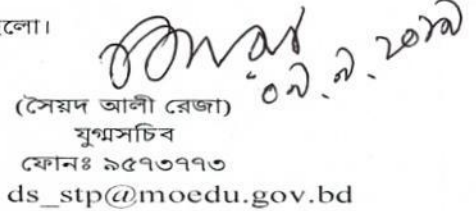 হলো।
(সৈয়দ আলী রেজা)
যুগ্মসচিব
ফোনঃ ৯৫৭৩৭৭৩
ds_stp@moedu.gov.bd